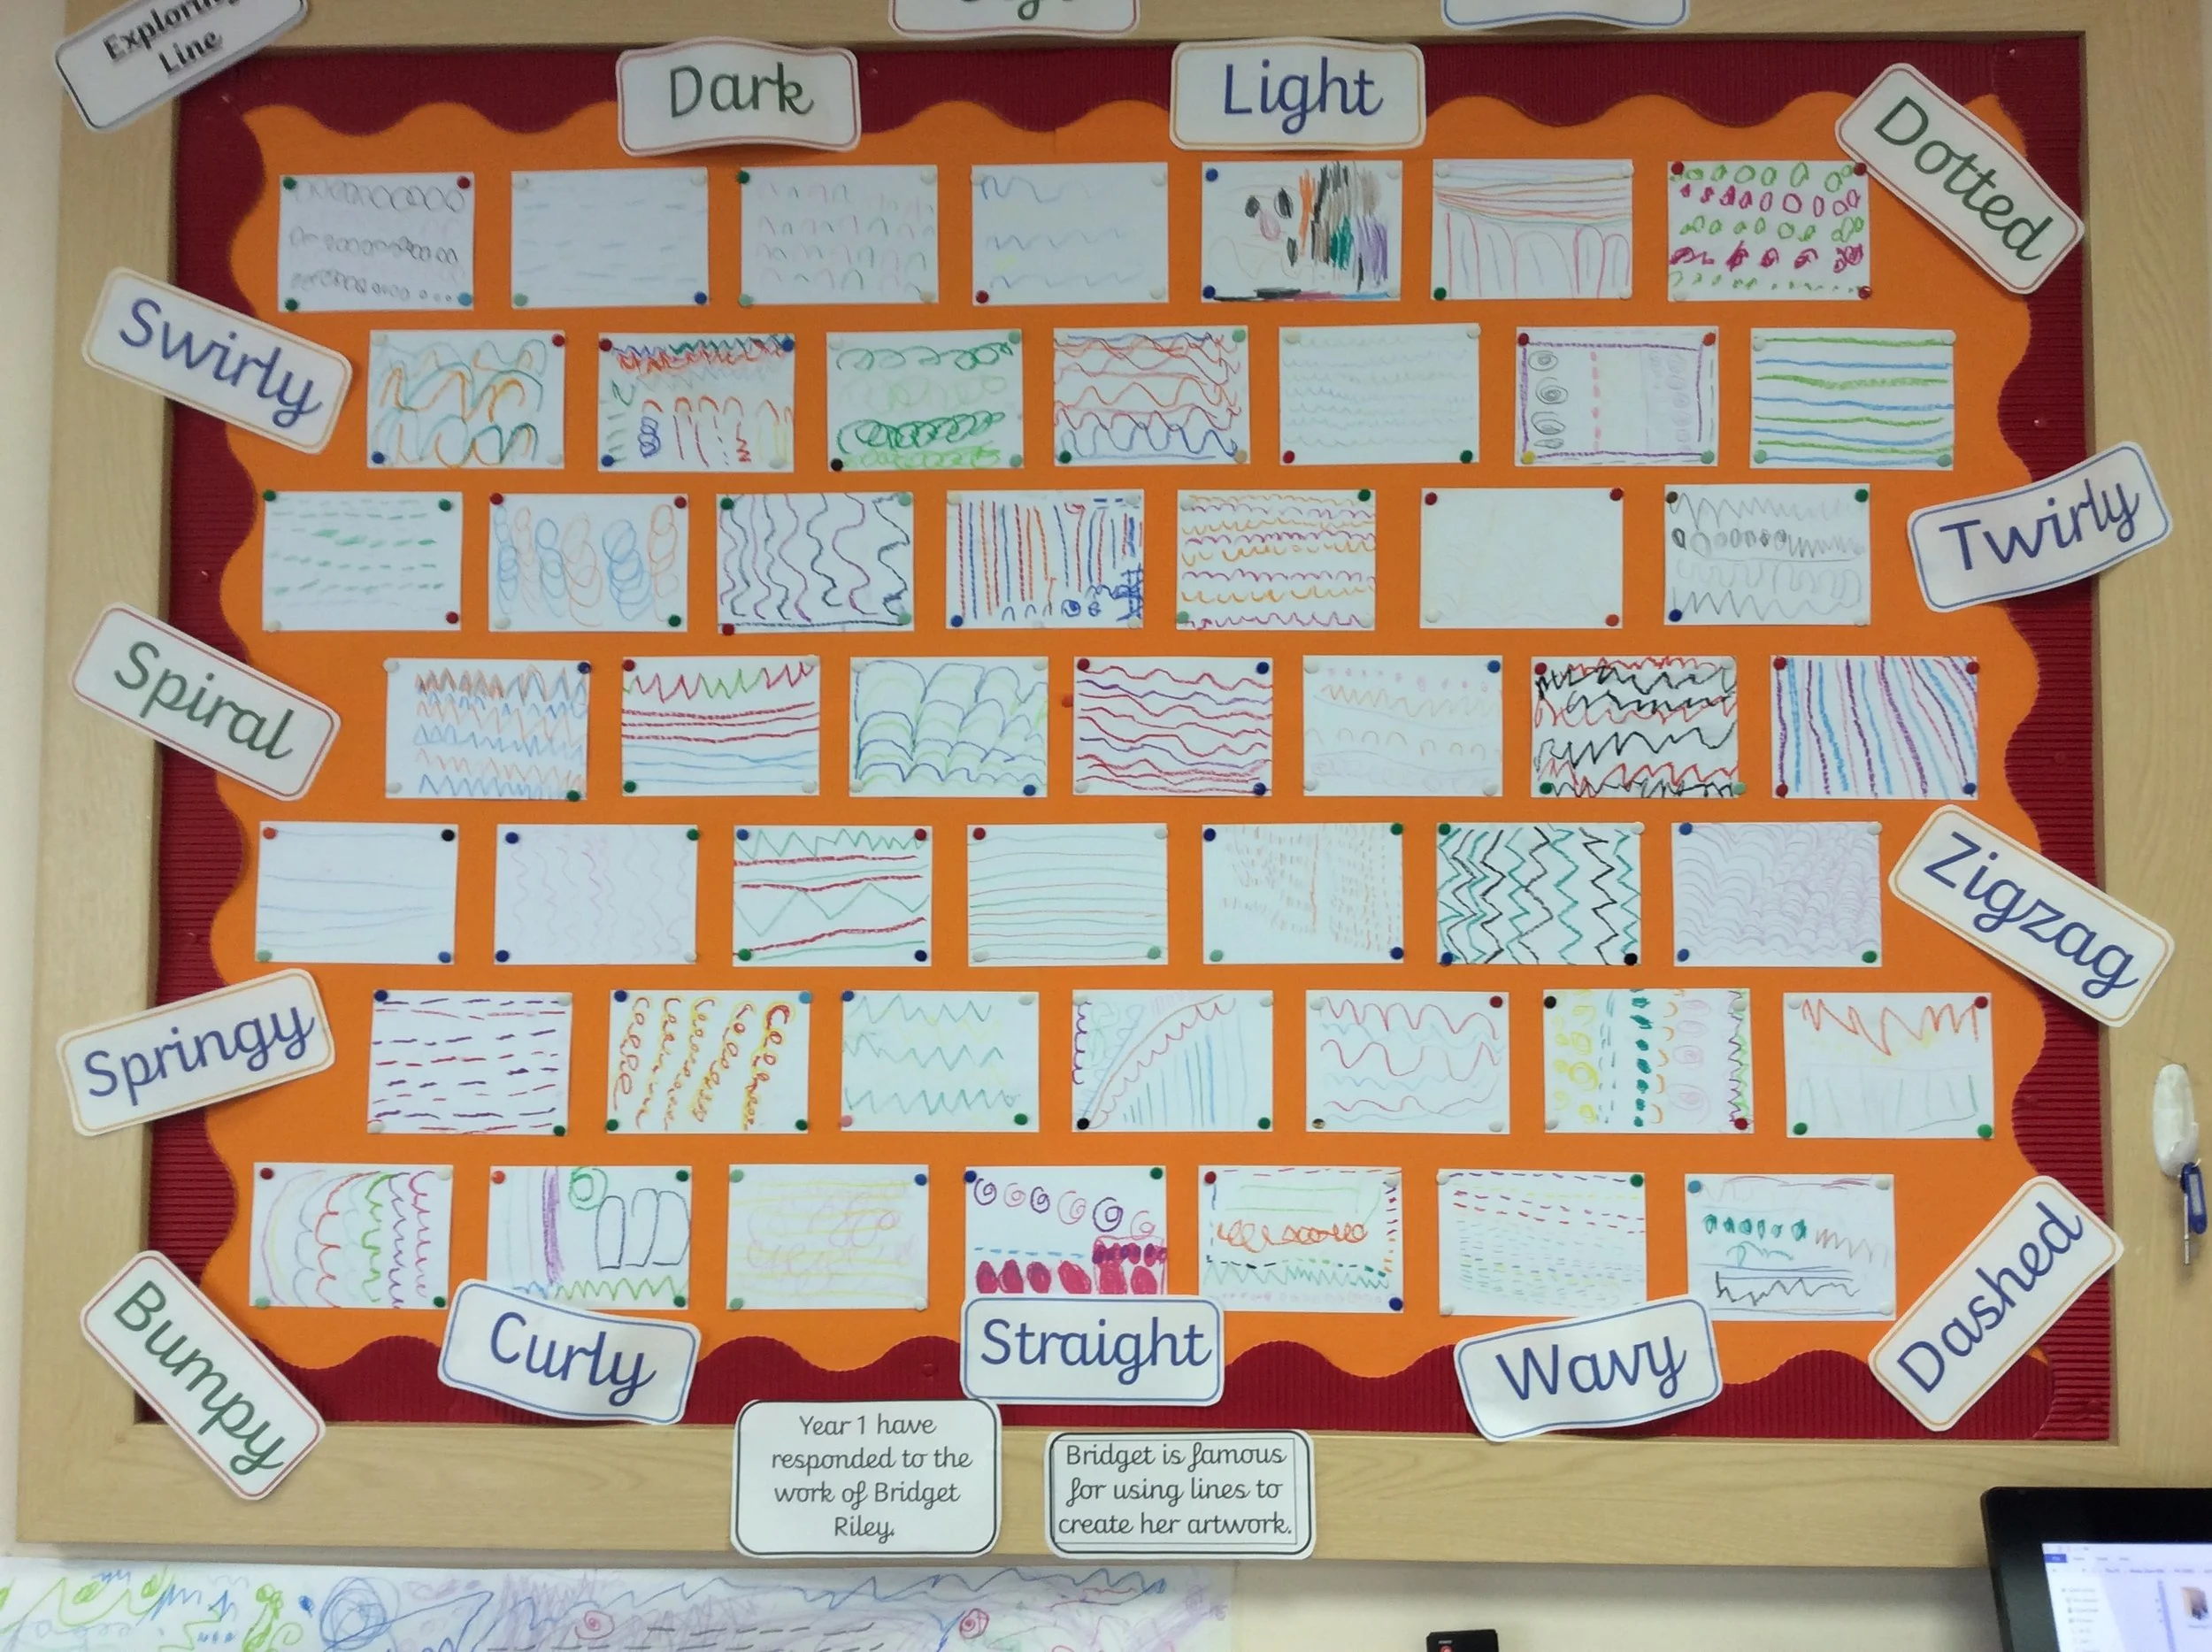 Exploring
Line
Dark
Light
Dotted
Swirly
Twirly
Spiral
Zigzag
Springy
Bumpy
Curly
Straight
Wavy
Dashed
Year 1 have
responded to the
work of Bridget
Riley.
Bridget is famous
for using lines to
create her artwork.